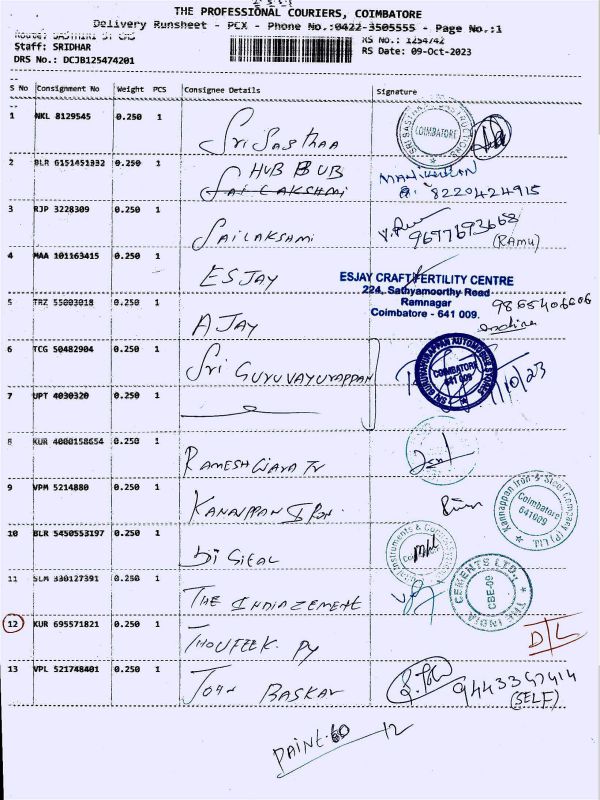 THE PROFESSIONAL COURIERS, COIMBATORE
Delivery Runsheet - PCX - Phone No.:0422-3505555 - Page No.:1
RS No.: 1254742
Staff: SRIDHAR
RS Date: 09-Oct-2023
DRS No.: DCJB125474201
S No Consignment No Weight PCS Consignee Details Signature
1 NKL 8129545 0.250 1 Sri Sasthaa COIMBATORE
2 BLR 6151451332 0.250 1 HUB BUB
Sai Lakshmi 8220424915
3 RJP 3228309 0.250 1 SAILAKSHMI 9677693668
(RAMU)
4 MAA 101163415 0.250 1 ESJAY
ESJAY CRAFT FERTILITY CENTRE
224, Sathyamoorthy Road
Ramnagar
Coimbatore - 641 009.
5 TRZ 55003018 0.250 1 AJAY
6 TCG 50482904 0.250 1 Sri GURUVAYURAPPAN
SRI GURUVAYURAPPAN AUTOMOBILE STORES COIMBATORE 641 009
7 UPT 4030320 0.250 1
8 KUR 4000158654 0.250 1 RAMESH
9 VPM 5214880 0.250 1 KANNAPPAN IRON
Kannappan Iron & Steel Company (P) Ltd. Coimbatore 641009
10 BLR 5450553197 0.250 1 DIGITAL
11 SLM 330127391 0.250 1 THE INDIA ZEMENT
THE INDIA CEMENTS LTD., CBE-09
12 KUR 695571821 0.250 1 THOUFEEK. PY D/L
13 VPL 521748401 0.250 1 JOHN BASKAR 9443347414
(SELF)
12